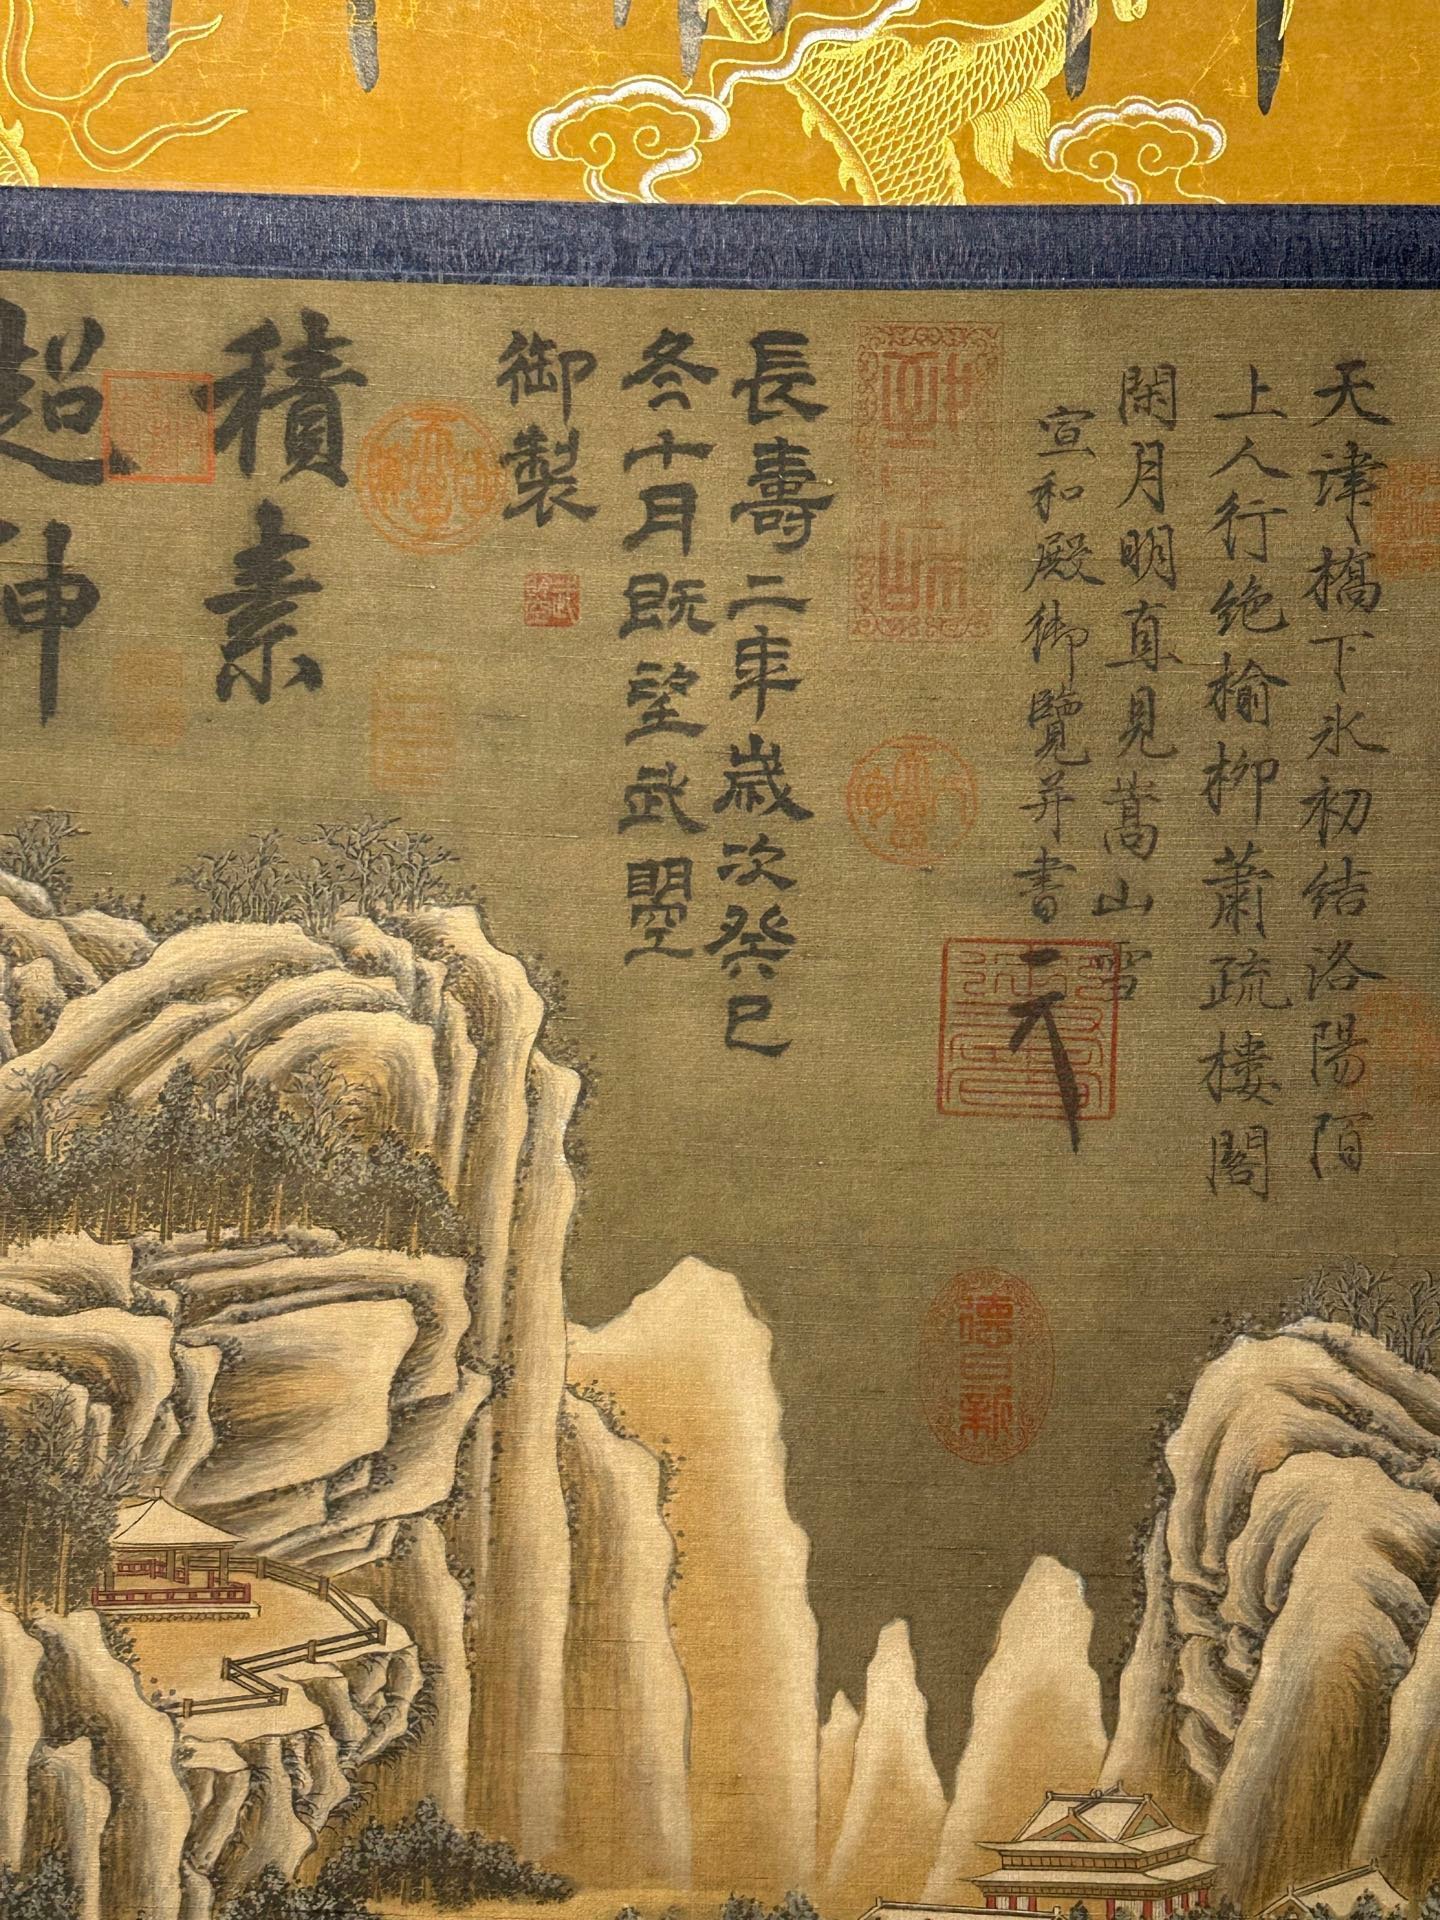 天津橋下氷初結洛陽陌
上人行绝榆柳蕭疏樓閣
閑月明直見嵩山雪
宣和殿御覽并書
天
長壽二年歲次癸巳
冬十月既望武曌
御製
積素
超神
德日新